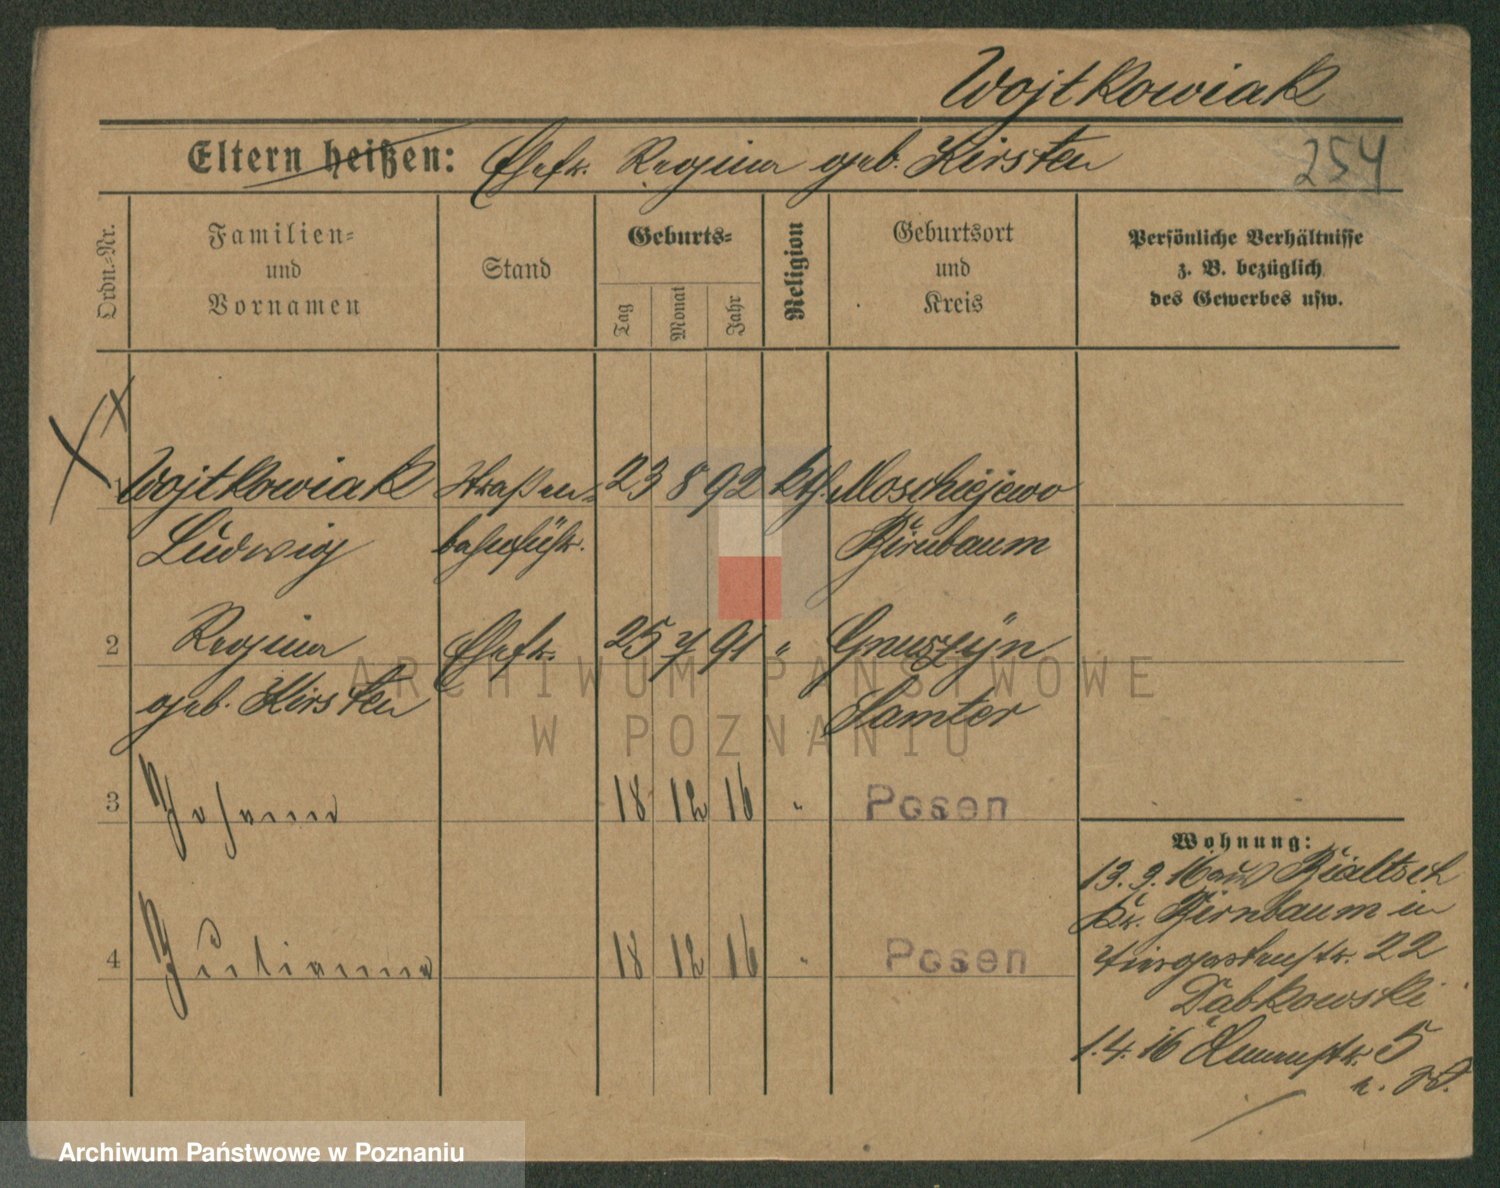 Wojtkowiak
Eltern heißen: Ehefr. Regina geb. Kirsten
254
Ordn.-Nr.
Familien-
und
Vornamen
Stand
Geburts-
Tag
Monat
Jahr
Religion
Geburtsort
und
Kreis
Persönliche Verhältnisse
z. B. bezüglich
des Gewerbes usw.
Wojtkowiak Straßen- 23 8 92 kth. Moschiejewo
Ludwig bahnführ. Birnbaum
2 Regina Ehefr. 25 7 91 " Gnuszyn
geb. Kirsten Samter
3 Johanna 18 12 16 " Posen
4 Julianna 18 12 16 " Posen
Wohnung:
13. 3. 16 aus Bialtsch
Kr. Birnbaum in
Tiergartenstr. 22
Dąbkowski
1. 4. 16 5
ARCHIWUM PAŃSTWOWE
W POZNANIU
Archiwum Państwowe w Poznaniu